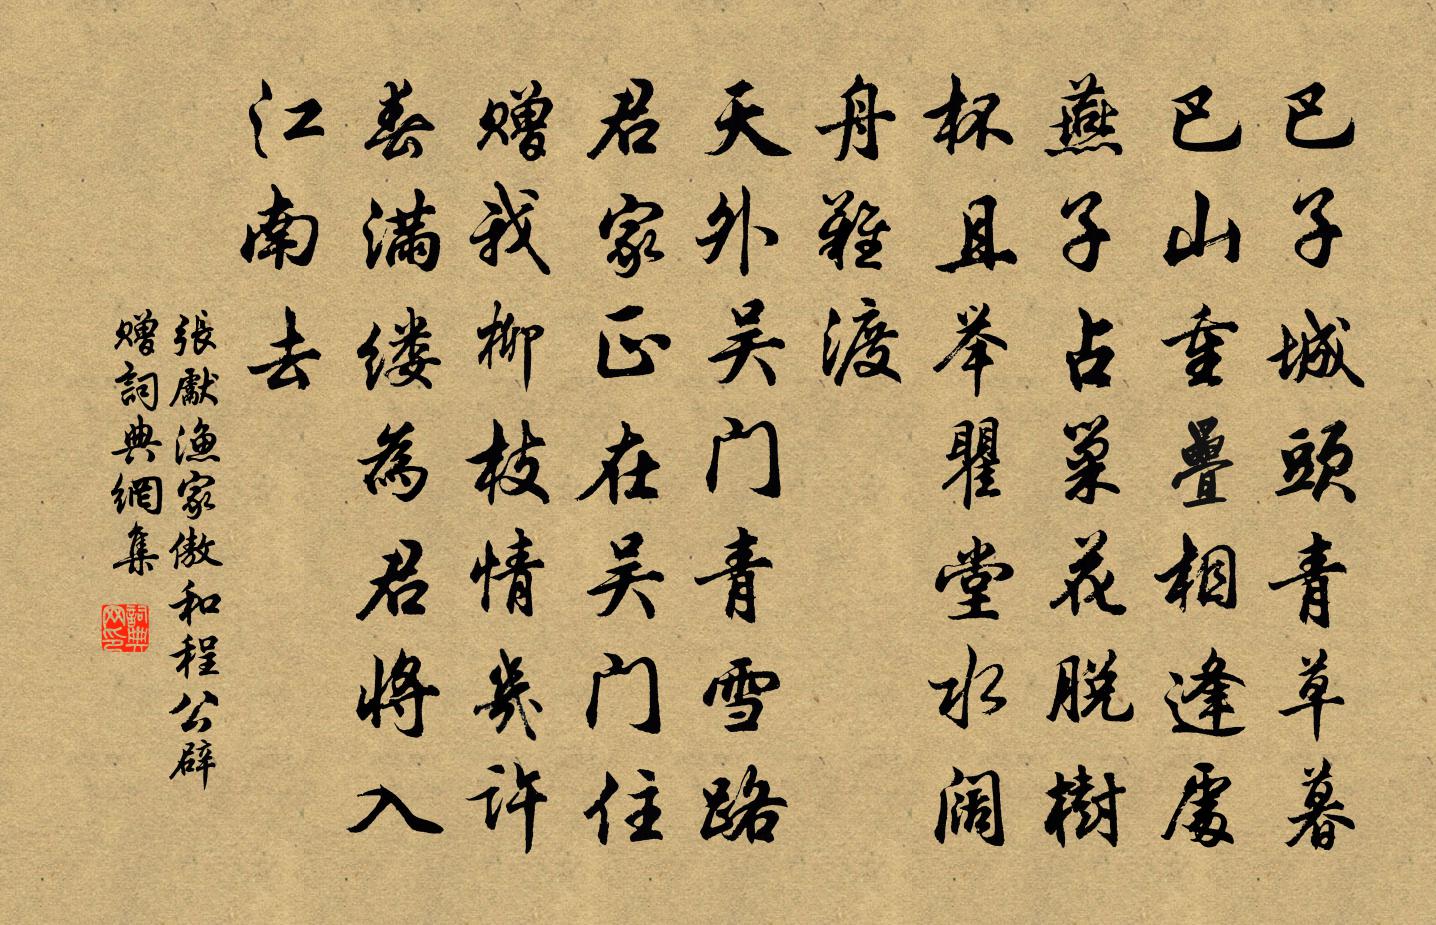 巴子城頭青草暮
巴山重疊相逢處
燕子占巢花脫樹
杯且举瞿堂水阔
舟難渡
天外吴门青雪路
君家正在吴门住
赠我柳枝情幾许
春满缕為君將入
江南去
張獻漁家傲和程公辟
赠詞典網集
詞典网印